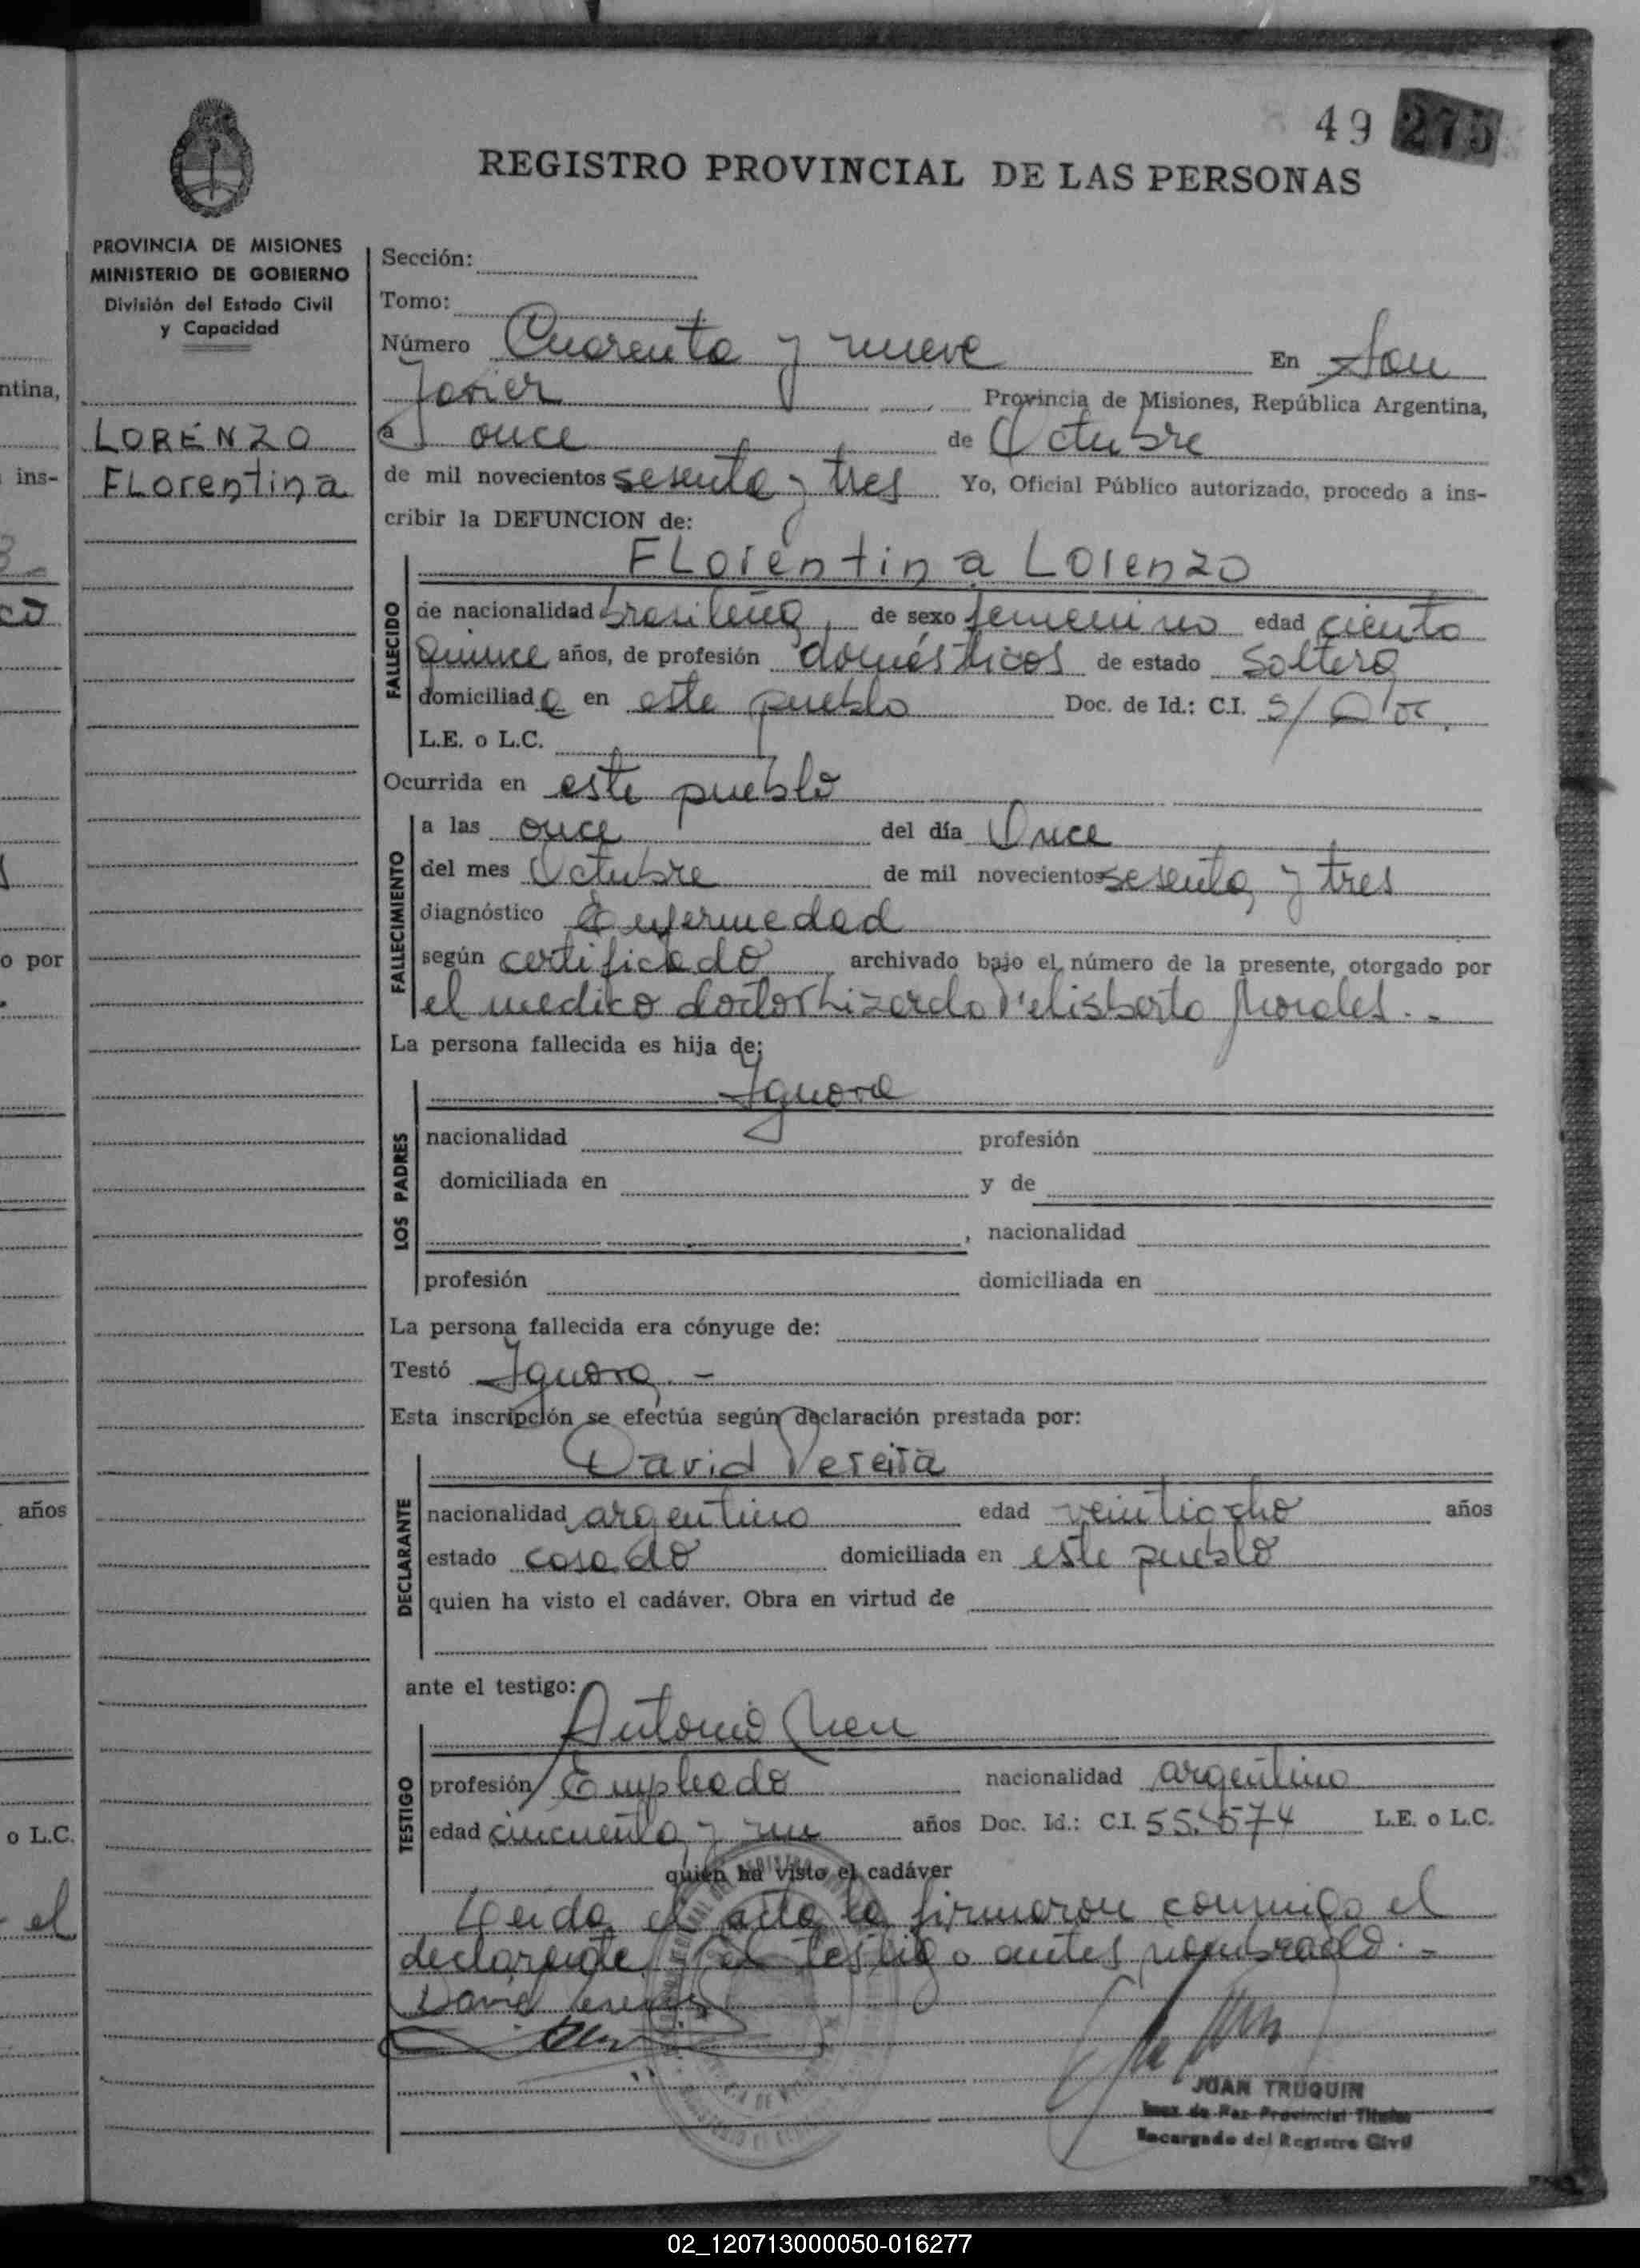 49 275
REGISTRO PROVINCIAL DE LAS PERSONAS
PROVINCIA DE MISIONES
MINISTERIO DE GOBIERNO
División del Estado Civil
y Capacidad
LORENZO
FLorentina
Sección:
Tomo:
Número Cuarenta y nueve En San
Javier Provincia de Misiones, República Argentina,
a once de Octubre
de mil novecientos sesenta y tres Yo, Oficial Público autorizado, procedo a ins-
cribir la DEFUNCION de:
FLorentina Lorenzo
FALLECIDO
de nacionalidad brasileña, de sexo femenino edad ciento
quince años, de profesión domésticos de estado soltera
domiciliada en este pueblo Doc. de Id.: C.I. S/
L.E. o L.C.
Ocurrida en este pueblo
FALLECIMIENTO
a las once del día Once
del mes Octubre de mil novecientos sesenta y tres
diagnóstico Enfermedad
según certificado archivado bajo el número de la presente, otorgado por
el medico doctor Lizardo Felisberto Morales. -
La persona fallecida es hija de:
Ignora
LOS PADRES
nacionalidad profesión
domiciliada en y de
, nacionalidad
profesión domiciliada en
La persona fallecida era cónyuge de:
Testó Ignora. -
Esta inscripción se efectúa según declaración prestada por:
David Pereira
DECLARANTE
nacionalidad argentino edad veintiocho años
estado casado domiciliada en este pueblo
quien ha visto el cadáver. Obra en virtud de
ante el testigo:
Antonio
TESTIGO
profesión Empleado nacionalidad argentino
edad cincuenta y un años Doc. Id.: C.I. 55.574 L.E. o L.C.
quien ha visto el cadáver
Leida el acta la firmaron conmigo el
declarante y el testigo antes nombrado. -
David Pereira
JUAN TRUQUIN
Juez de Paz Provincial Titular
Encargado del Registro Civil
ntina,
ins-
o por
años
o L.C.
el
02_120713000050-016277